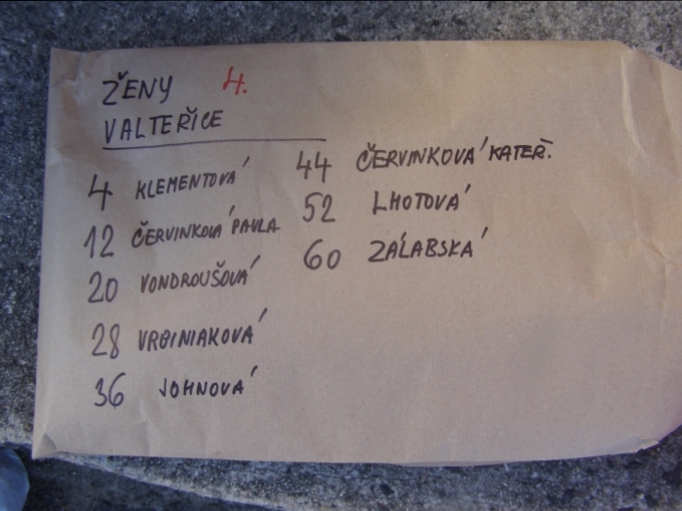 ŽENY 4.
VALTEŘICE
4 KLEMENTOVÁ
12 ČERVINKOVÁ PAVLA
20 VONDROUŠOVÁ
28 VRBINIAKOVÁ
36 JOHNOVÁ
44 ČERVINKOVÁ KATEŘ.
52 LHOTOVÁ
60 ZÁLABSKÁ